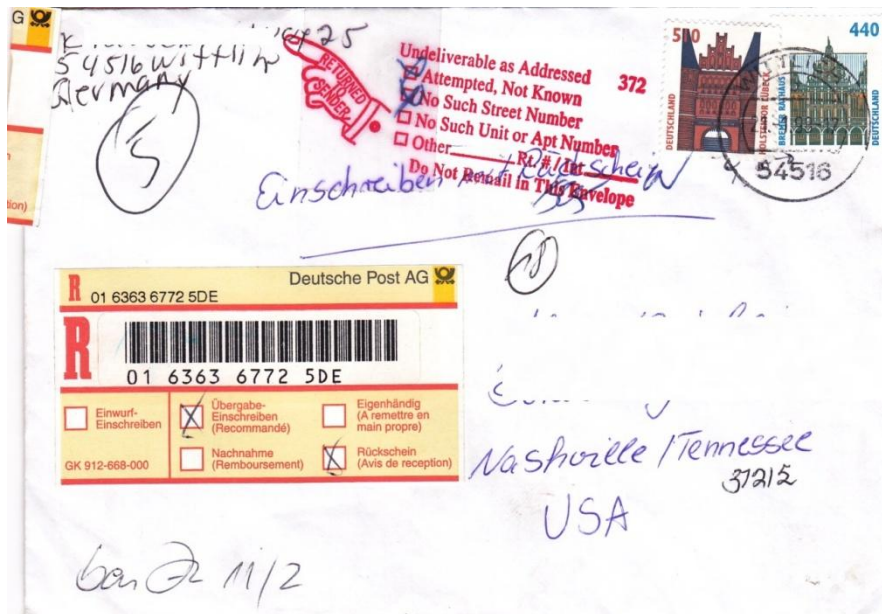 G
25
54516 Wittlich
Germany
5
RETURNED
TO
SENDER
Undeliverable as Addressed
Attempted, Not Known
372
No Such Street Number
No Such Unit or Apt Number
Other Rt. #/
Do Not Remail in This Envelope
Einschreiben mit Rückschein
510
DEUTSCHLAND
HOLSTENTOR LÜBECK
440
BREMER RATHAUS
DEUTSCHLAND
54516
tion)
Deutsche Post AG
R 01 6363 6772 5DE
R
01 6363 6772 5DE
Einwurf-
Einschreiben
Übergabe-
Einschreiben
(Recommandé)
Eigenhändig
(A remettre en
main propre)
GK 912-668-000
Nachnahme
(Remboursement)
Rückschein
(Avis de reception)
Nashville/Tennessee
37215
USA
11/2